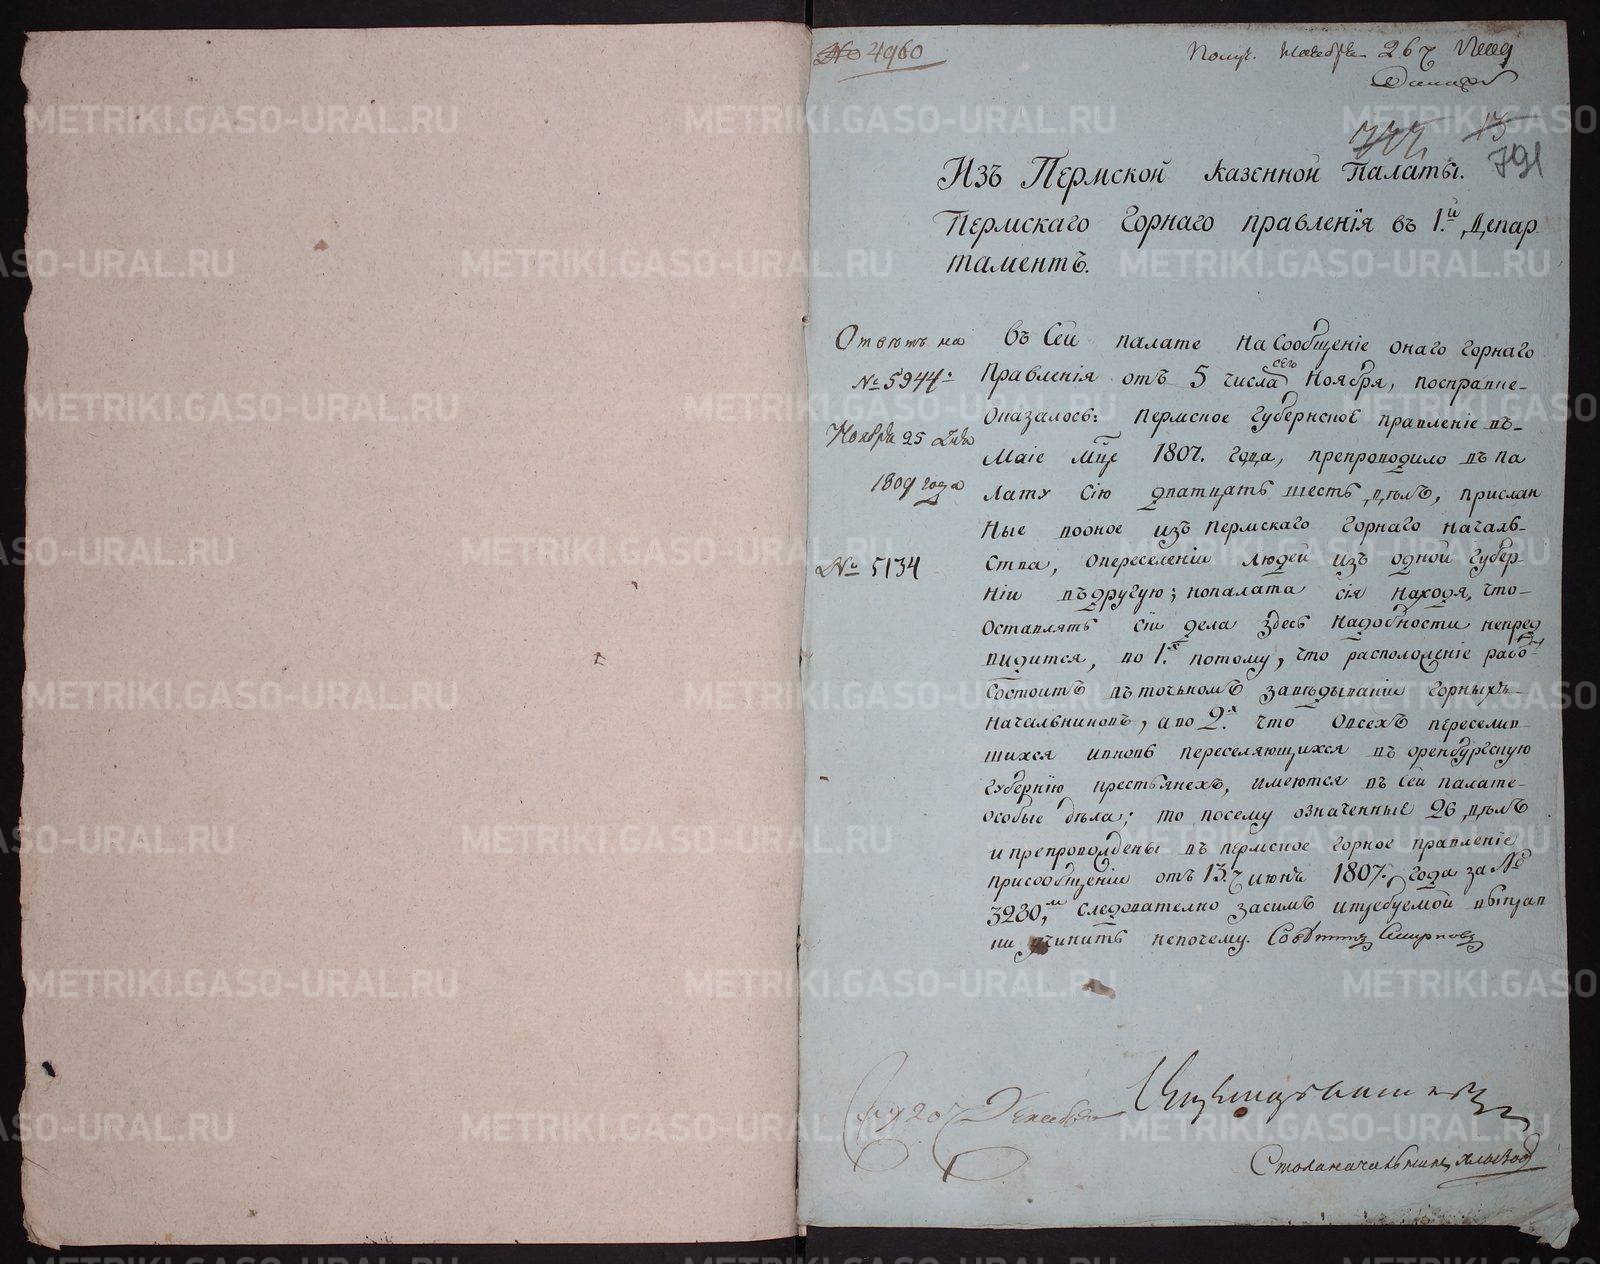 № 4960
Получ. Ноября 26 ч 1809
13
791
Изъ Пермской казенной Палаты.
Пермскаго Горнаго правленія въ 1.й Депар
таментъ.
Ответъ на
№ 5944
Ноября 25 дня
1809 года
№ 5134
Въ Сей палате на Сообщеніе онаго горнаго
Правленія отъ 5 числа сего Ноября, посправке
Оказалось: Пермское Губернское правленіе въ
Маіе Мце 1807. года, препроводило въ па
лату Сію дватцать шесть делъ, прислан
ные воное изъ Пермскаго Горнаго Началь
ства, опереселеніи людей изъ одной Губер
ніи въ другую; нопалата сія находя, что
Оставлять сіи дела здесь надобности непред
видится, по 1.е потому, что расположеніе работъ
Состоитъ въ точномъ заведываніи Горныхъ
Начальниковъ, а по 2.е что овсехъ переселив
шихся ивновь переселяющихся въ оренбургскую
Губернію крестьянехъ, имеются въ Сей палате
особые дела; то посему означенные 26 делъ
и препровождены въ пермское горное правленіе
присообщеніи отъ 13. ч июня 1807. года за №
3230,м следователно засимъ итребуемой выправ
ки учинить непочему. Советникъ Смирновъ
Столаначальникъ
METRIKI.GASO-URAL.RU